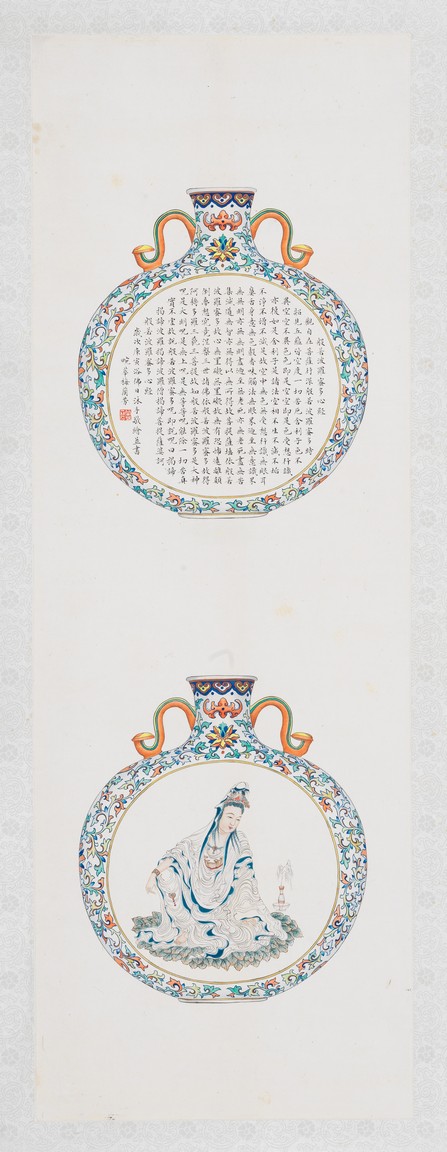 般若波羅蜜多心經
觀自在菩薩行深般若波羅蜜多時
照見五蘊皆空度一切苦厄舍利子色不
異空空不異色色即是空空即是色受想行識
亦復如是舍利子是諸法空相不生不滅不垢
不淨不增不減是故空中無色無受想行識無眼耳
鼻舌身意無色聲香味觸法無眼界乃至無意識界
無無明亦無無明盡乃至無老死亦無老死盡無苦
集滅道無智亦無得以無所得故菩提薩埵依般若
波羅蜜多故心無罣礙無罣礙故無有恐怖遠離顛
倒夢想究竟涅槃三世諸佛依般若波羅蜜多故得
阿耨多羅三藐三菩提故知般若波羅蜜多是大神
呪是大明呪是無上呪是無等等呪能除一切苦真
實不虛故說般若波羅蜜多呪即說呪曰揭諦
揭諦波羅揭諦波羅僧揭諦菩提薩婆訶
般若波羅蜜多心經
歲次庚寅浴佛日沐手敬繪並書
畹華梅蘭芳